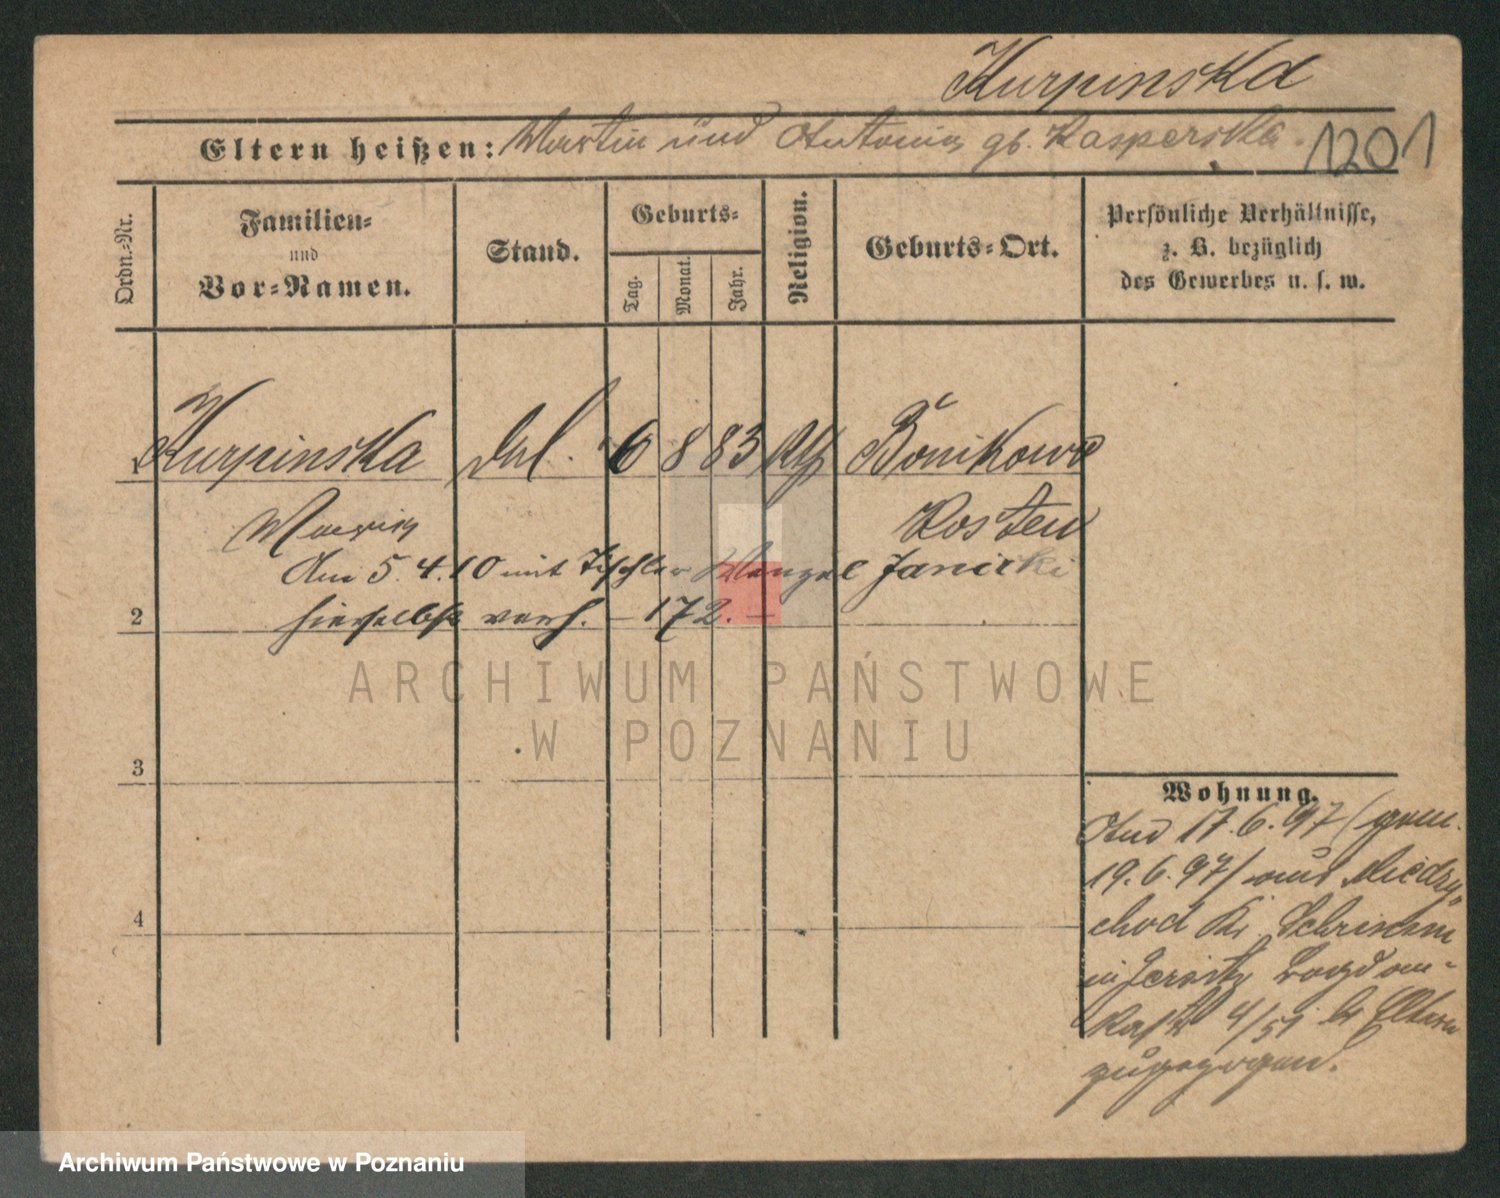 Kurpinska
Eltern heißen: Martin und Antonia gb. Kasperska. 1201
Ordn.-Nr.
Familien-
und
Vor-Namen.
Stand.
Geburts-
Tag.
Monat.
Jahr.
Religion.
Geburts-Ort.
Persönliche Verhältnisse,
z. B. bezüglich
des Gewerbes u. s. w.
1 Kurpinska 6 8 83 Bonikowo
Kosten
Am 5.4.10 mit Tischler Janicki
2 hierselbst verh. – 172. –
ARCHIWUM PAŃSTWOWE
W POZNANIU
3
Wohnung.
17.6.97 / gem.
19.6.97 / aus Miedzy
chod Kr. Schrimm
in Jersitz
4/51 Eltern
zugezogen.
4
Archiwum Państwowe w Poznaniu